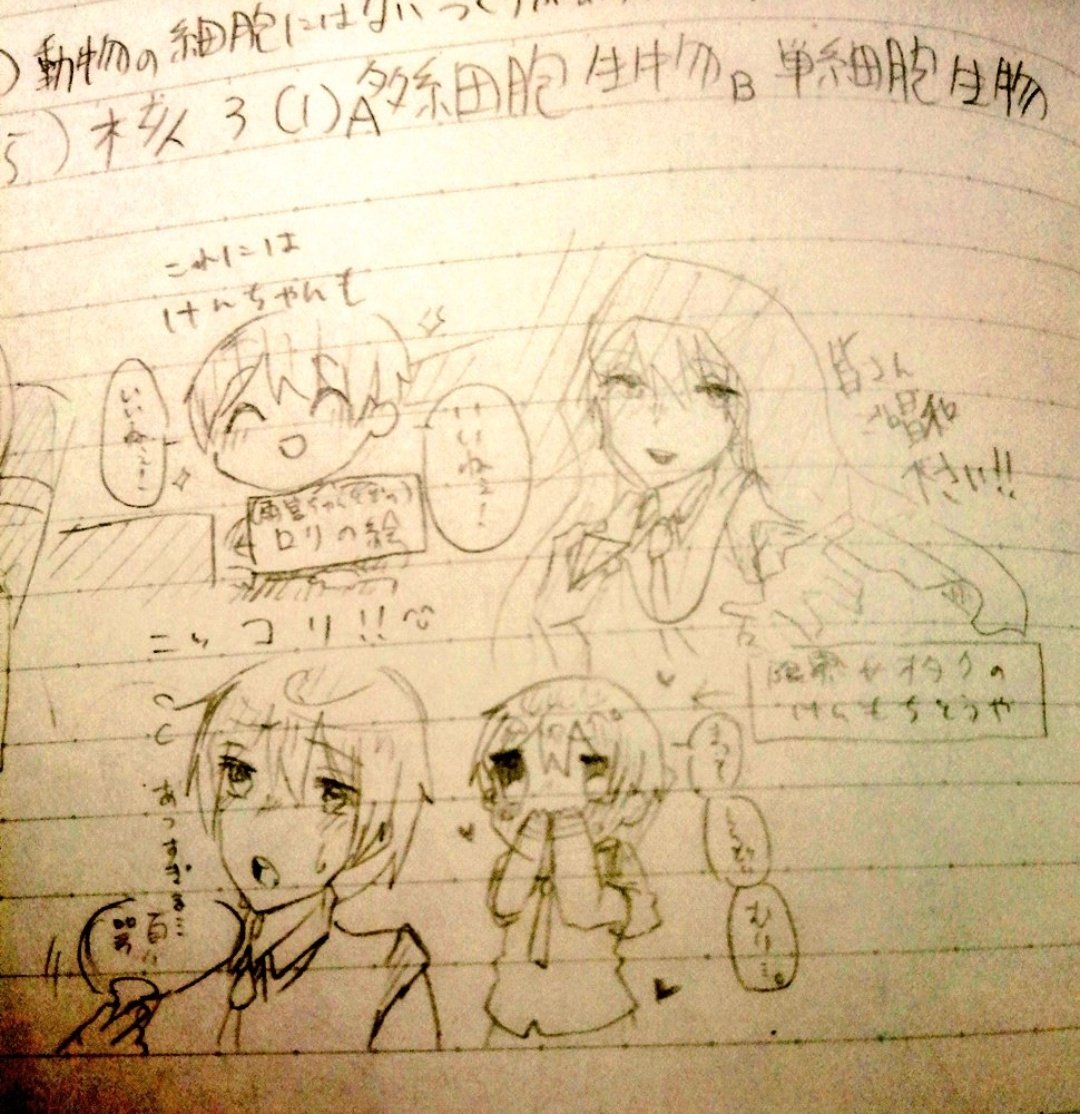 )動物の細胞にはない
5)核 3(1)A多細胞生物B単細胞生物
これには
けんちゃんも
いいねぇ!
いいねぇ!
ロリの絵
皆さん
ご唱和
下さい!!
ニッコリ!!
女オタクの
けんもちとうや
あつすぎる…
まって
むり…。